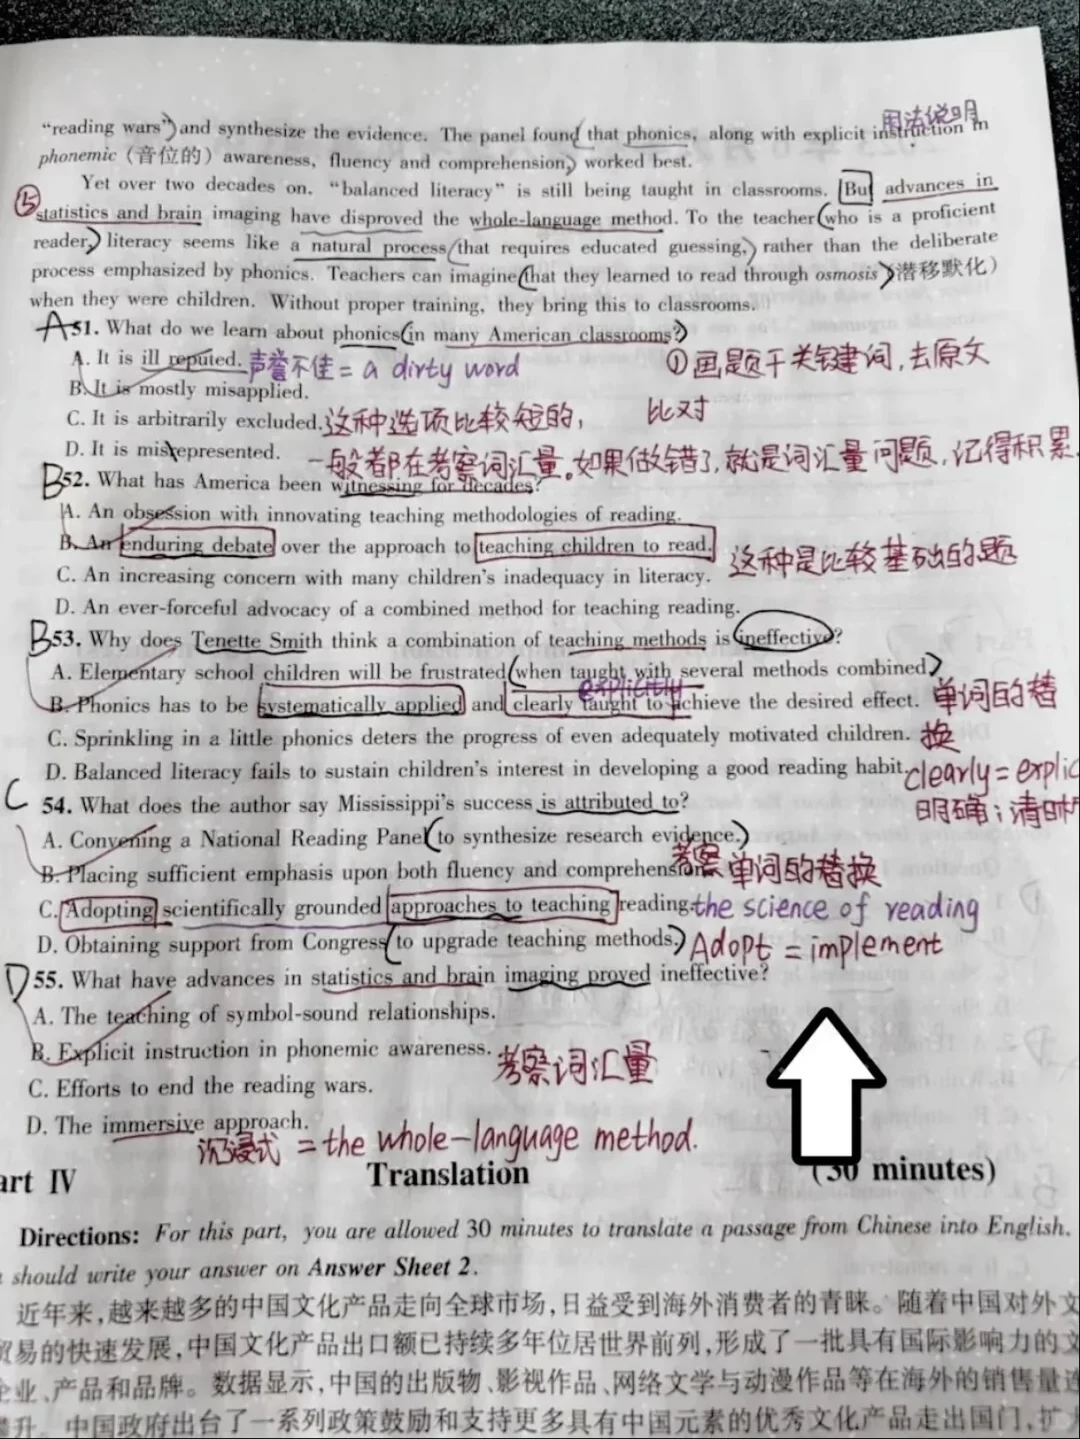 用法说明
"reading wars") and synthesize the evidence. The panel found that phonics, along with explicit instruction in
phonemic (音位的) awareness, fluency and comprehension, worked best.
⑤ Yet over two decades on, "balanced literacy" is still being taught in classrooms. But advances in
statistics and brain imaging have disproved the whole-language method. To the teacher (who is a proficient
reader,) literacy seems like a natural process (that requires educated guessing,) rather than the deliberate
process emphasized by phonics. Teachers can imagine (that they learned to read through osmosis) (潜移默化)
when they were children. Without proper training, they bring this to classrooms.
A 51. What do we learn about phonics (in many American classrooms?)
A. It is ill reputed. 声誉不佳 = a dirty word
①画题干关键词,去原文
比对
B. It is mostly misapplied.
C. It is arbitrarily excluded. 这种选项比较短的,
D. It is misrepresented. 一般都在考察词汇量。如果做错了,就是词汇量问题,记得积累
B 52. What has America been witnessing for decades?
A. An obsession with innovating teaching methodologies of reading.
B. An enduring debate over the approach to teaching children to read. 这种是比较基础的题
C. An increasing concern with many children's inadequacy in literacy.
D. An ever-forceful advocacy of a combined method for teaching reading.
B 53. Why does Tenette Smith think a combination of teaching methods is ineffective?
A. Elementary school children will be frustrated (when taught with several methods combined)
explicitly
B. Phonics has to be systematically applied and clearly taught to achieve the desired effect. 单词的替
换
C. Sprinkling in a little phonics deters the progress of even adequately motivated children.
D. Balanced literacy fails to sustain children's interest in developing a good reading habit. clearly = explic
明确;清晰
C 54. What does the author say Mississippi's success is attributed to?
A. Convening a National Reading Panel (to synthesize research evidence.)
B. Placing sufficient emphasis upon both fluency and comprehension. 考察单词的替换
C. Adopting scientifically grounded approaches to teaching reading. the science of reading
D. Obtaining support from Congress (to upgrade teaching methods.) Adopt = implement
D 55. What have advances in statistics and brain imaging proved ineffective?
A. The teaching of symbol-sound relationships.
B. Explicit instruction in phonemic awareness. 考察词汇量
C. Efforts to end the reading wars.
D. The immersive approach.
沉浸式 = the whole-language method.
art IV Translation (30 minutes)
Directions: For this part, you are allowed 30 minutes to translate a passage from Chinese into English.
should write your answer on Answer Sheet 2.
近年来,越来越多的中国文化产品走向全球市场,日益受到海外消费者的青睐。随着中国对外文
贸易的快速发展,中国文化产品出口额已持续多年位居世界前列,形成了一批具有国际影响力的文
企业、产品和品牌。数据显示,中国的出版物、影视作品、网络文学与动漫作品等在海外的销售量连
攀升。中国政府出台了一系列政策鼓励和支持更多具有中国元素的优秀文化产品走出国门,扩大